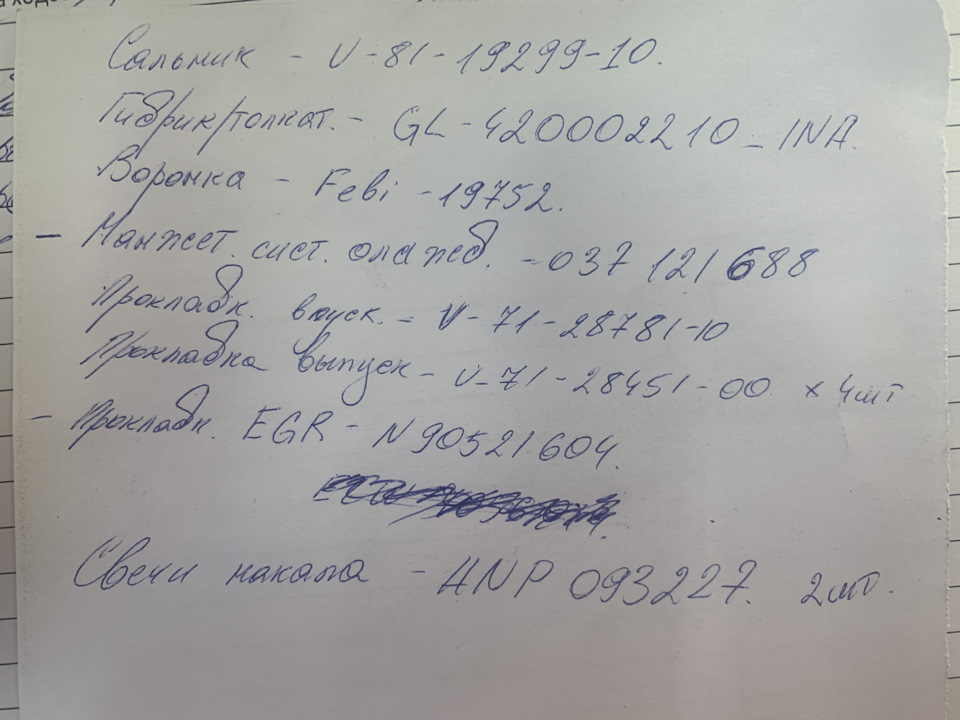 Сальник - V-81-19299-10.
Гидрик/толкат. - GL-420002210 - INA.
Воронка - Febi - 19752.
- Манжет. сист. охлажд. - 037 121 688
Прокладк. впуск. - V-71-28781-10
Прокладка выпуск - V-71-28451-00 x 4шт
- Прокладк. EGR - N90521604.
Свечи накала - HNP 093227. 2шт.